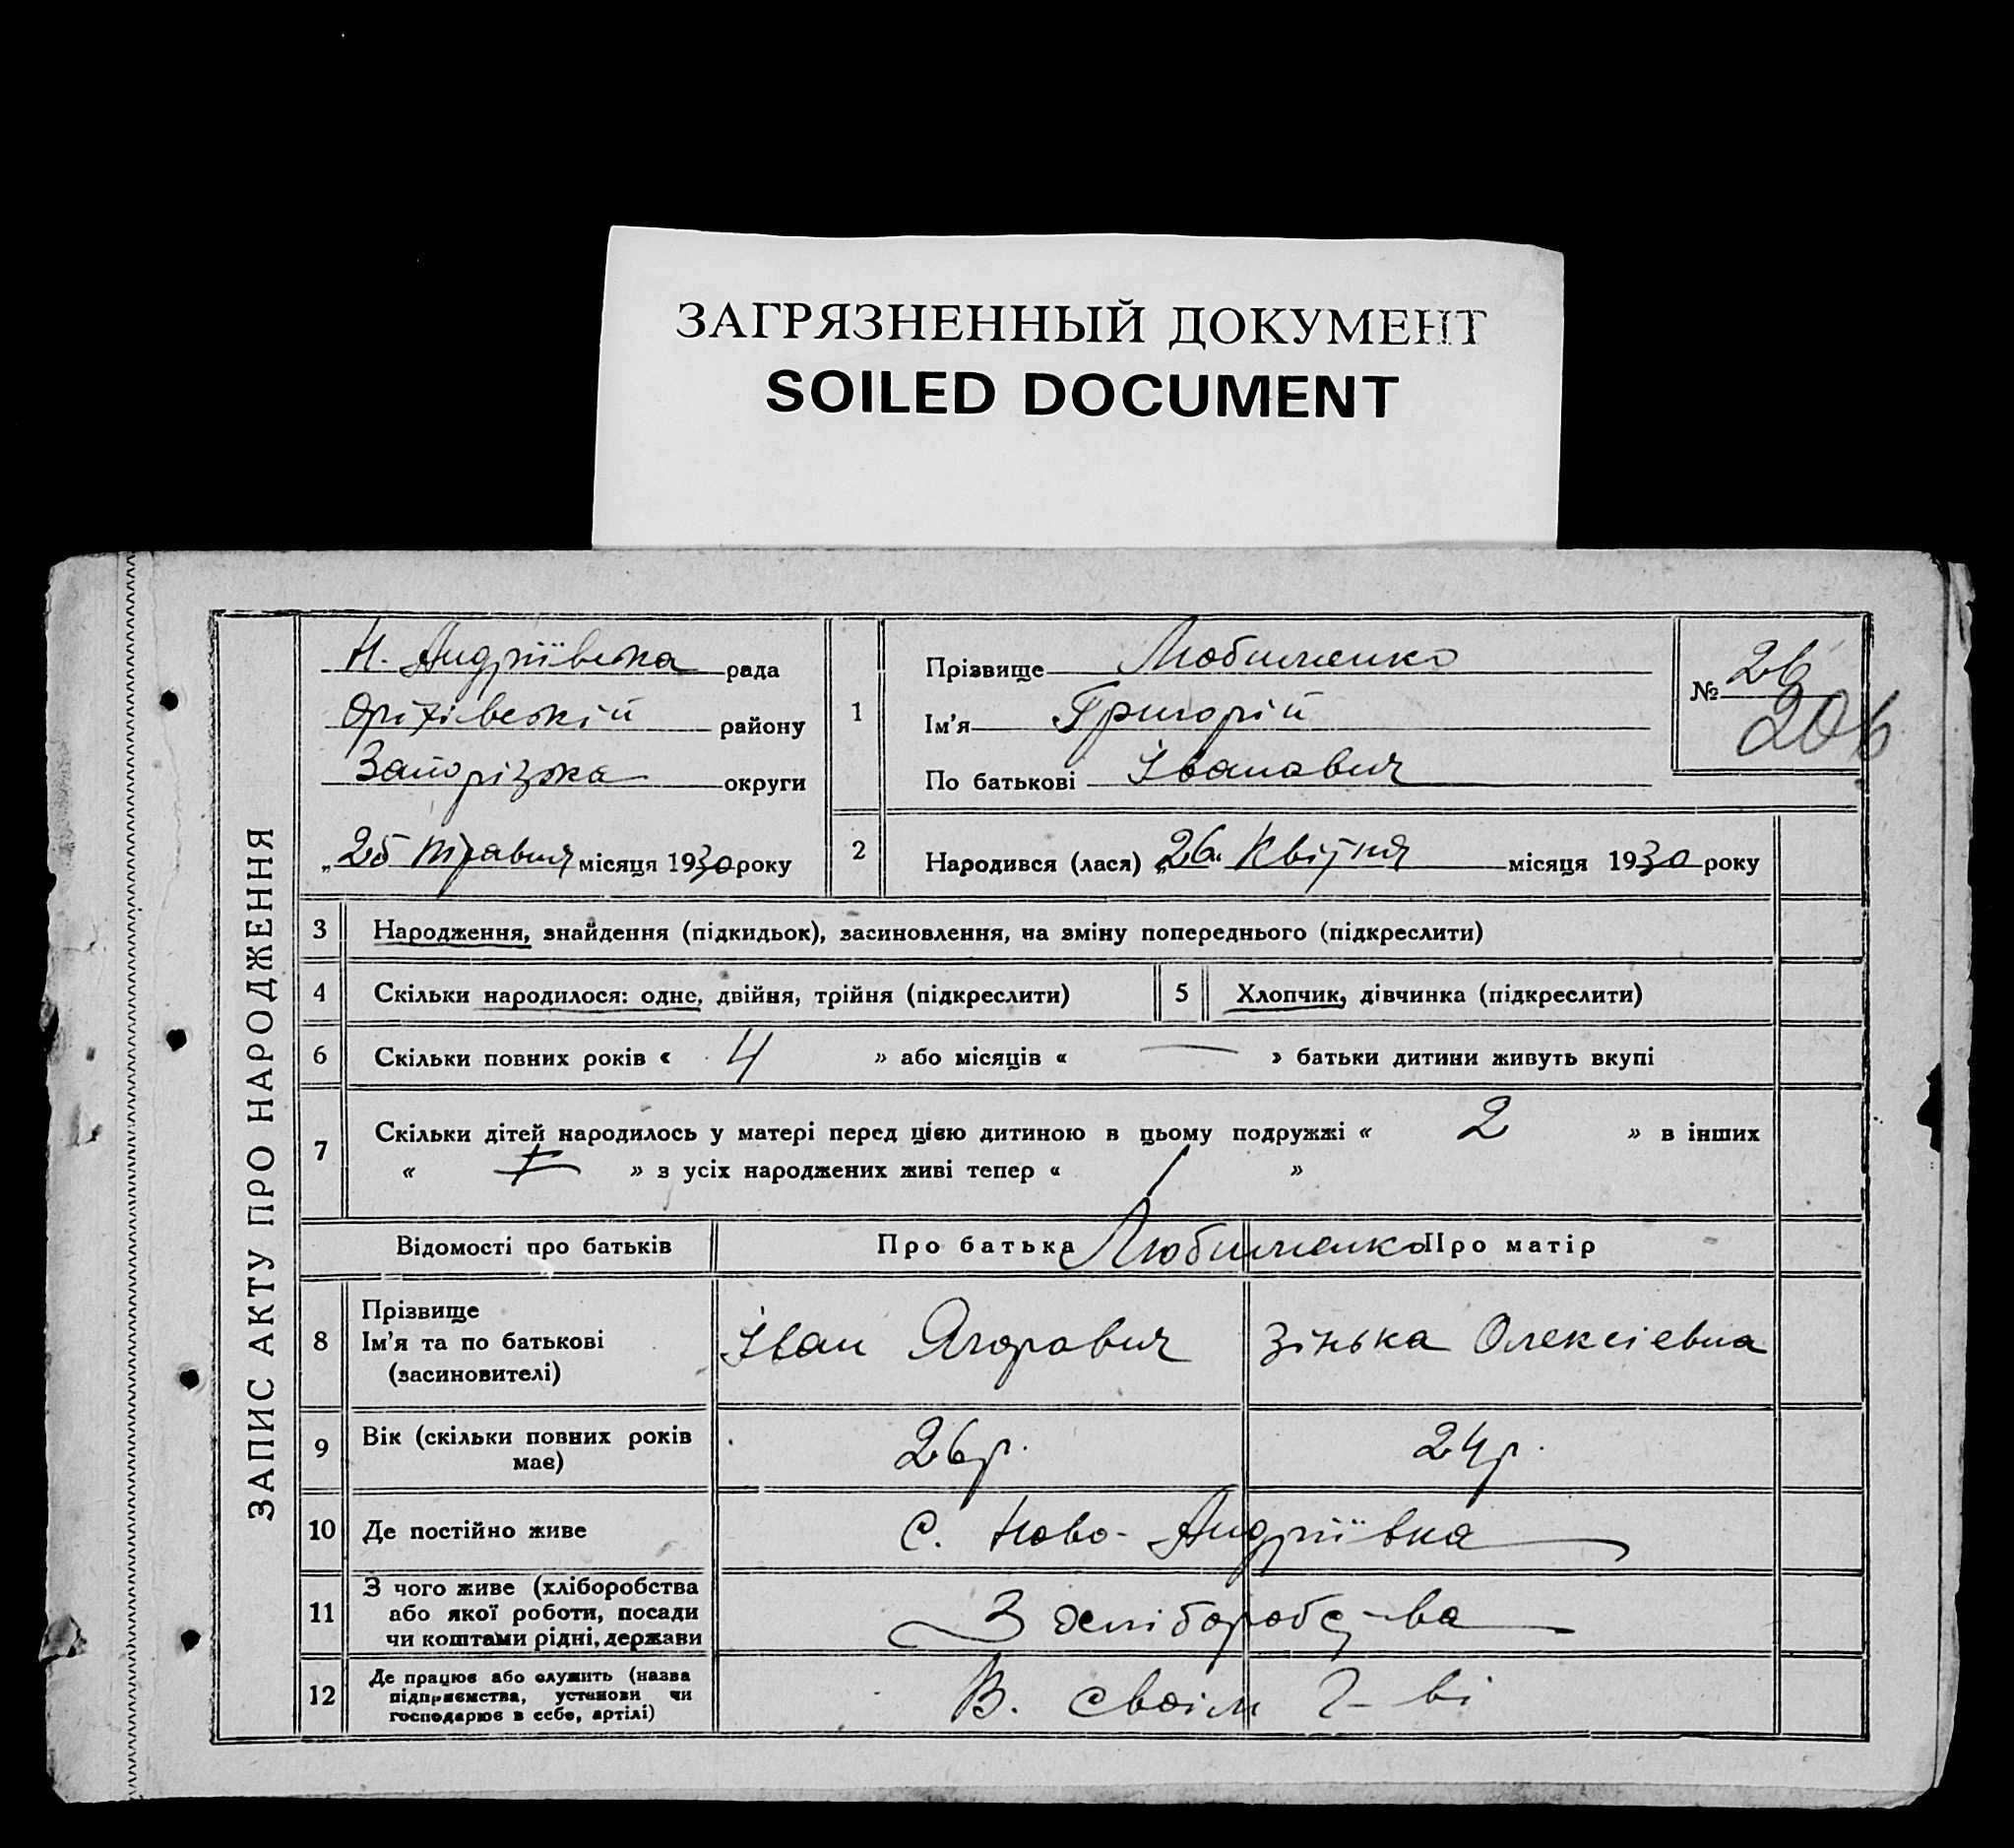 ЗАГРЯЗНЕННЫЙ ДОКУМЕНТ
SOILED DOCUMENT
ЗАПИС АКТУ ПРО НАРОДЖЕННЯ
Н. Андріївська рада
Оріхівський району
Запорізька округи
„25 травня місяця 1930 року
1
Прізвище
Ім'я Григорій
По батькові Іванович
№ 26
206
2
Народився (лася) „26" Квітня місяця 1930 року
3 Народження, знайдення (підкидьок), засиновлення, на зміну попереднього (підкреслити)
4 Скільки народилося: одне, двійня, трійня (підкреслити)
5 Хлопчик, дівчинка (підкреслити)
6 Скільки повних років « 4 » або місяців « — » батьки дитини живуть вкупі
7 Скільки дітей народилось у матері перед цією дитиною в цьому подружжі « 2 » в інших
« » з усіх народжених живі тепер « »
Відомості про батьків Про батька Про матір
8 Прізвище
Ім'я та по батькові
(засиновителі)
Іван Ягорович Зінька Олексієвна
9 Вік (скільки повних років
має)
26 р. 24 р.
10 Де постійно живе с. Ново-Андріївка
11 З чого живе (хліборобства
або якої роботи, посади
чи коштами рідні, держави
З хліборобс-ва
12 Де працює або служить (назва
підприємства, установи чи
господарює в себе, артілі)
В. своїм г-ві